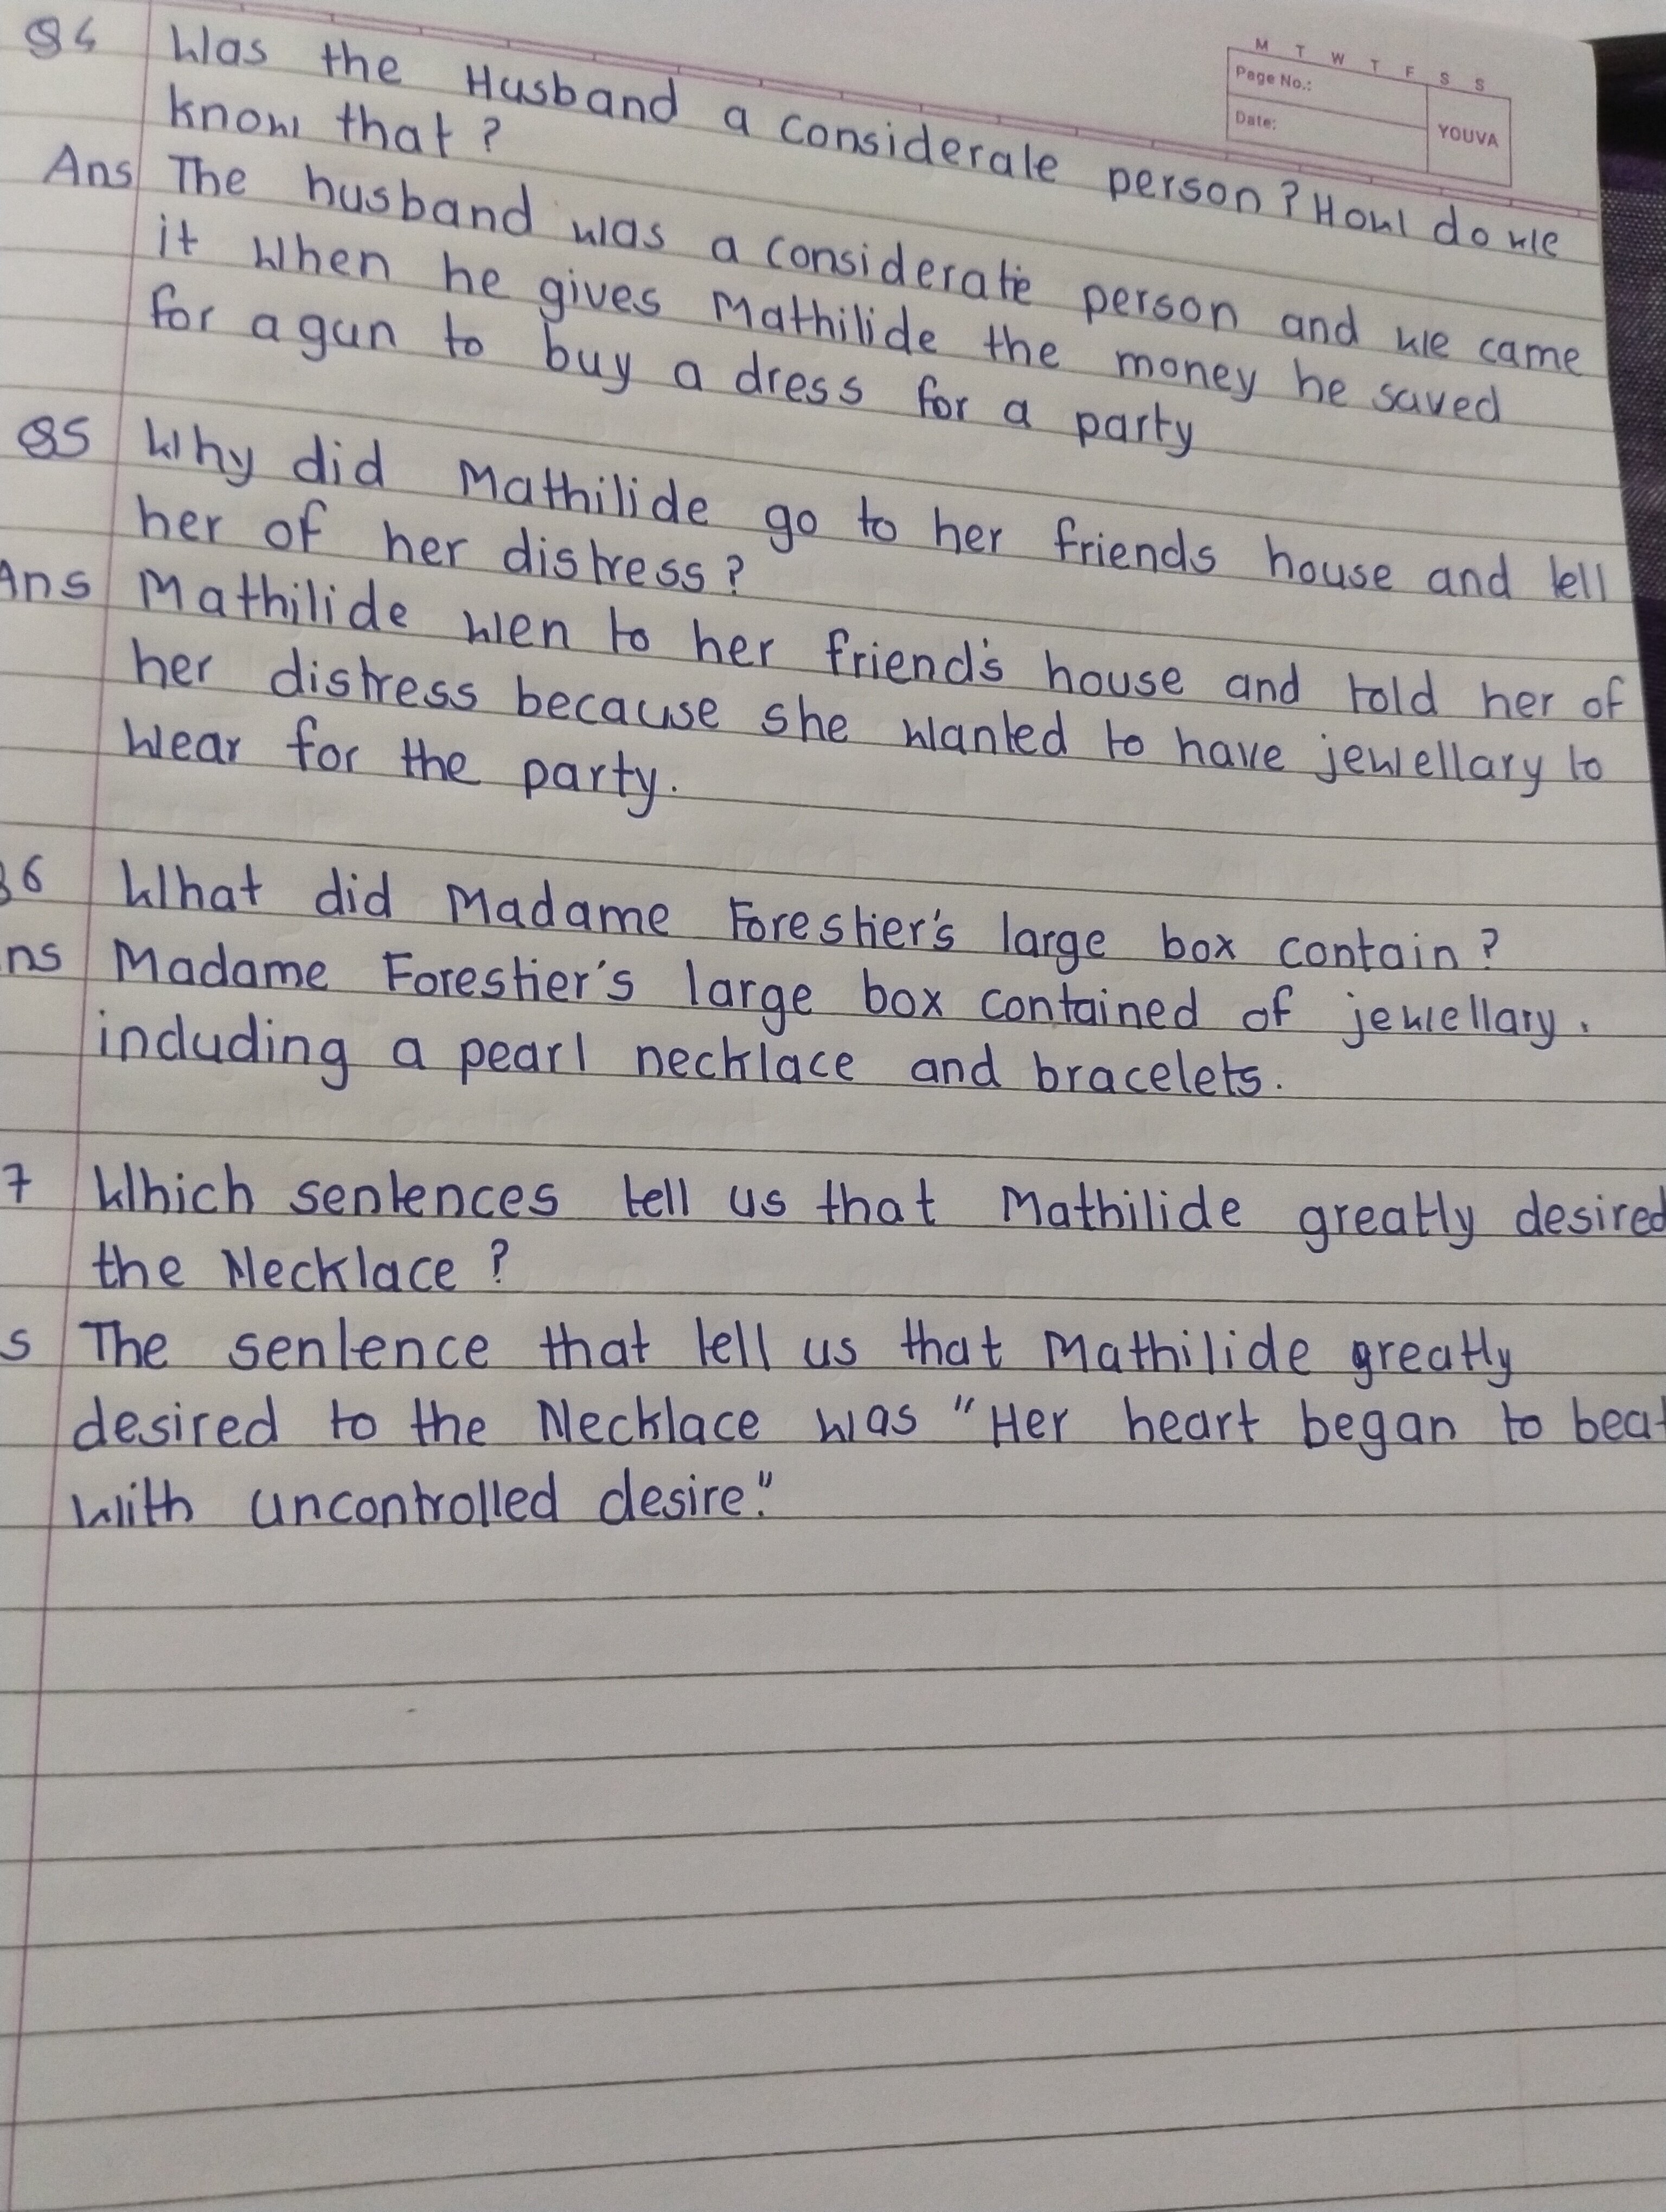 M T W T F S S
Page No.:
Date:
YOUVA
Q4 Was the Husband a considerale person? How do we
know that?
Ans The husband was a considerate person and we came
it when he gives Mathilide the money he saved
for a gun to buy a dress for a party
Q5 Why did Mathilide go to her friends house and tell
her of her distress?
Ans Mathilide wen to her friend's house and told her of
her distress because she wanted to have jewellary to
wear for the party.
6 What did Madame Forestier's large box contain?
ns Madame Forestier's large box contained of jewellary.
including a pearl necklace and bracelets.
7 Which sentences tell us that Mathilide greatly desired
the Necklace?
s The sentence that tell us that Mathilide greatly
desired to the Necklace was "Her heart began to beat
with uncontrolled desire."